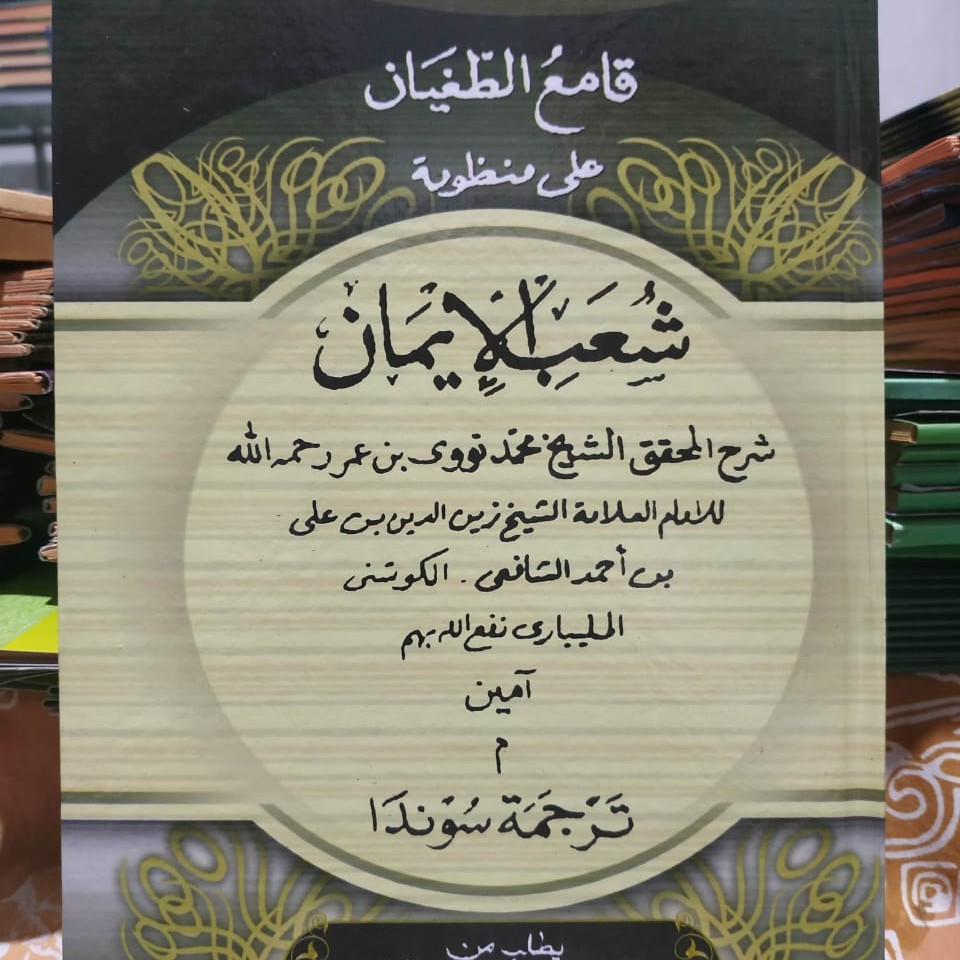 قامعُ الطّغيَان
على منظوية
شُعَبِ الْإِيمَان
شرح المحقق الشيخ محمّد نووى بن عمر رحمه الله
للامام العلامة الشيخ زين الدين بن على
بن أحمد الشافعى . الكوشنى
المليبارى نفع الله بهم
آمين
م
تَرْجَمَة سُوْنْدَا
يطلب من